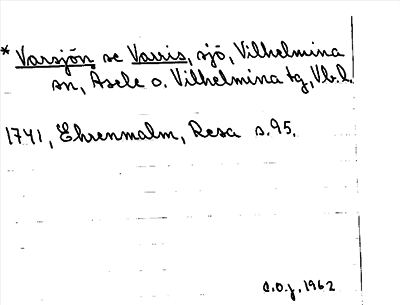 * Varsjön se Varris, sjö, Vilhelmina
sn, Åsele o. Vilhelmina tg, Vb.l.
1741, Ehrenmalm, Resa s. 95.
C.O.J. 1962